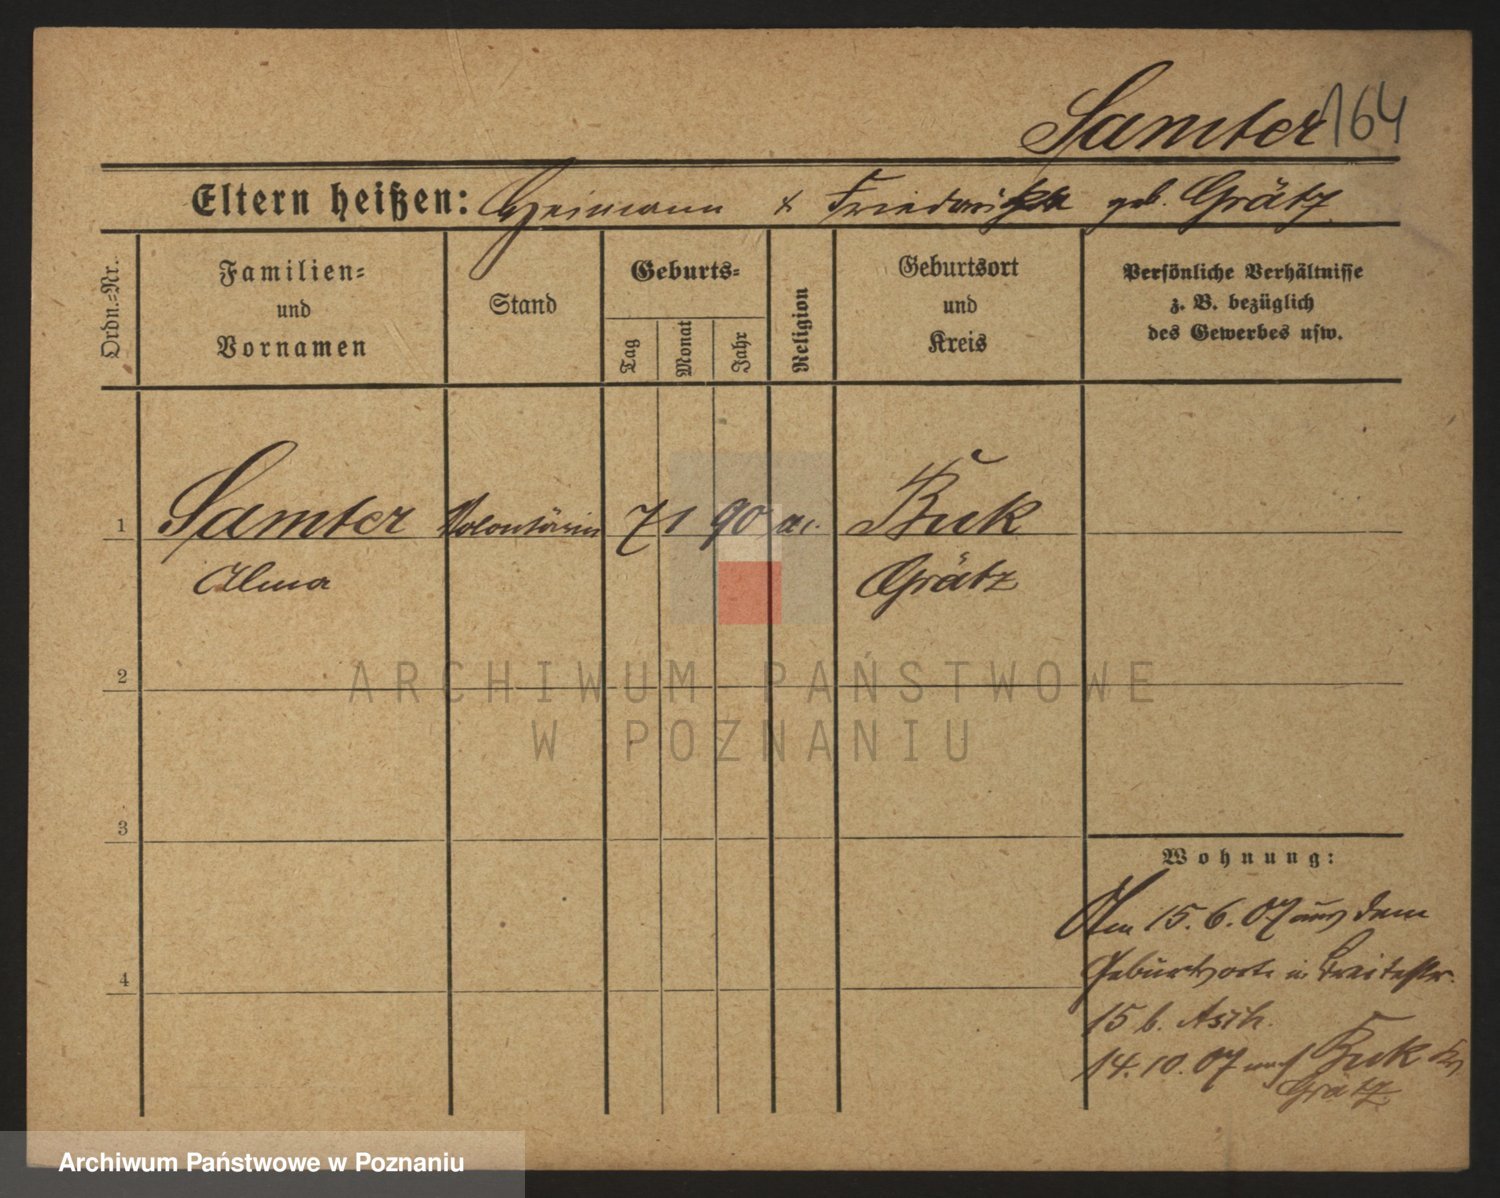 Samter 164
Eltern heißen: Heimann & Friedericka geb. Grätz
Ordn.=Nr.
Familien=
und
Vornamen
Stand
Geburts=
Tag
Monat
Jahr
Religion
Geburtsort
und
Kreis
Persönliche Verhältnisse
z. B. bezüglich
des Gewerbes usw.
1 Samter Volontärin 7 1 90 Buk
Alma Grätz
2
3
4
Wohnung:
Am 15.6.07 aus dem
Geburtsorte n. Breitestr.
15 b. Asch.
14.10.07 nach Buk Krs
Grätz.
ARCHIWUM PAŃSTWOWE
W POZNANIU
Archiwum Państwowe w Poznaniu